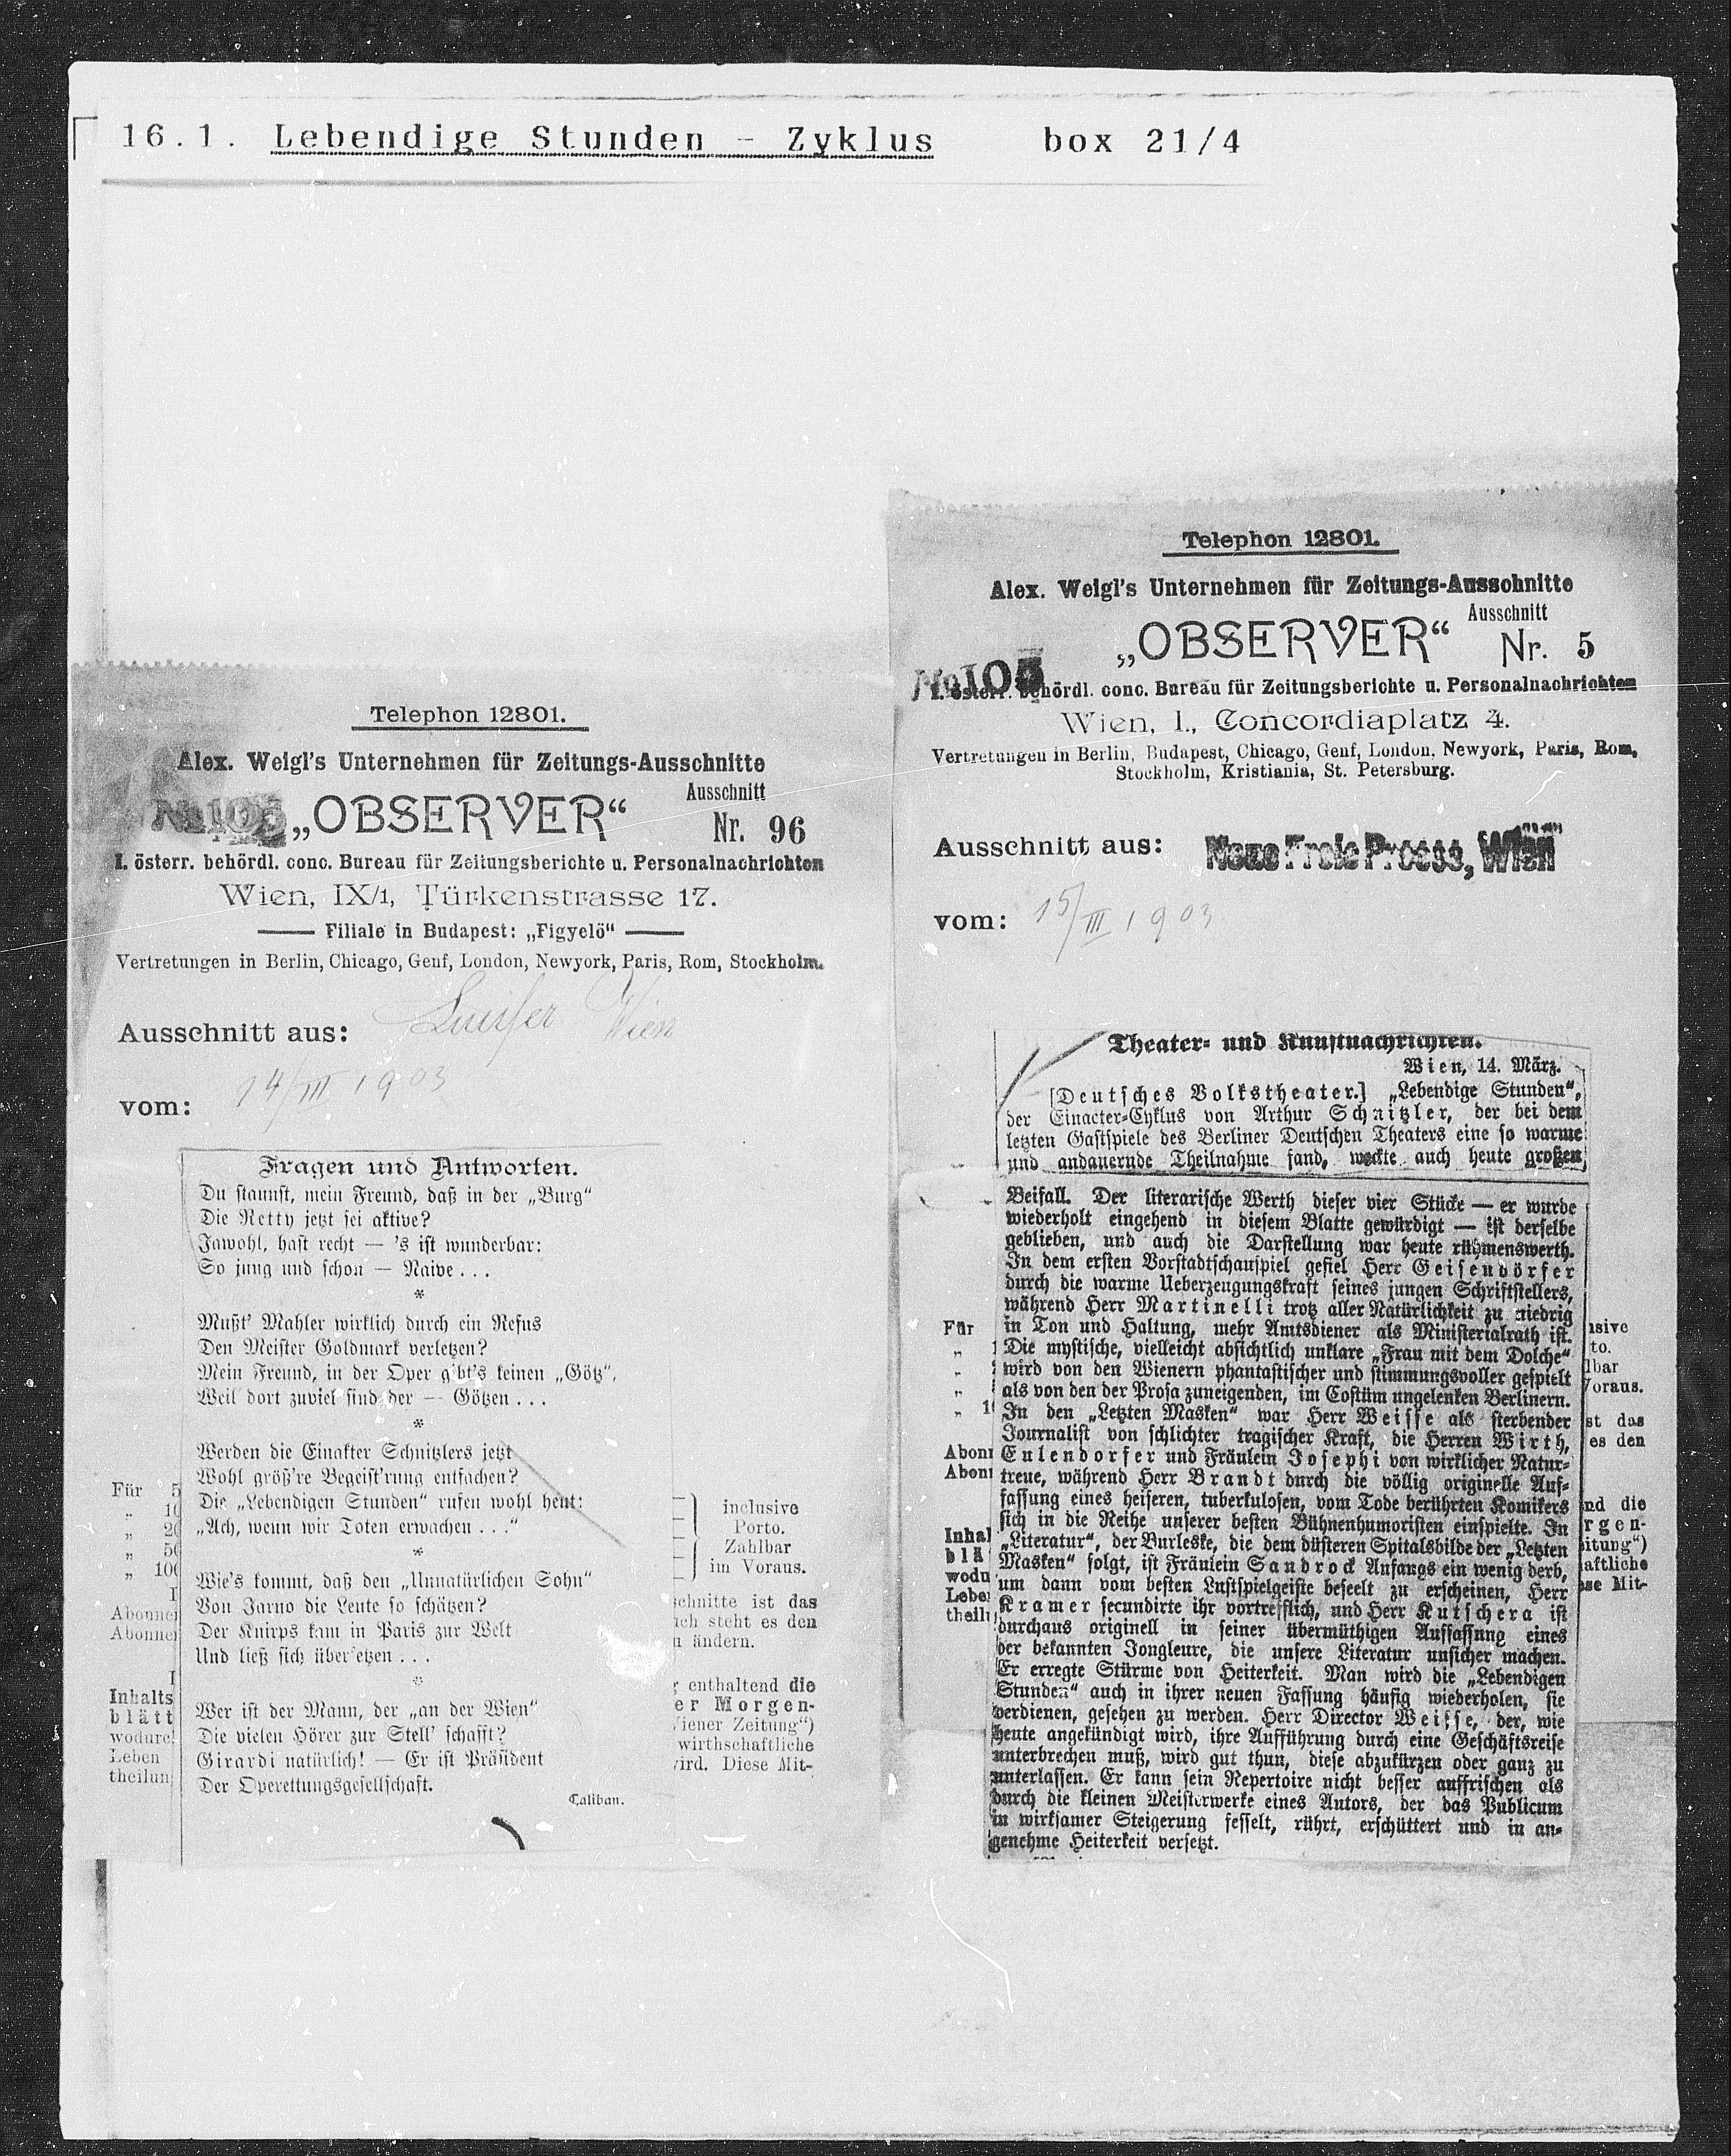 16.1. Lebendige Stunden - Zyklus box 21/4
Telephon 12801.
Alex. Weigl's Unternehmen für Zeitungs-Ausschnitte
№ 105 „OBSERVER“ Ausschnitt
Nr. 96
I. österr. behördl. conc. Bureau für Zeitungsberichte u. Personalnachrichten
Wien, IX/1, Türkenstrasse 17.
Filiale in Budapest: „Figyelö“
Vertretungen in Berlin, Chicago, Genf, London, Newyork, Paris, Rom, Stockholm.
Ausschnitt aus: Wien
vom: 14/III 1903
Fragen und Antworten.
Du staunst, mein Freund, daß in der „Burg“
Die Retty jetzt sei aktive?
Jawohl, hast recht — 's ist wunderbar:
So jung und schon — Naive . . .
*
Mußt' Mahler wirklich durch ein Refus
Den Meister Goldmark verletzen?
Mein Freund, in der Oper gibt's keinen „Götz“,
Weil dort zuviel sind der — Götzen . . .
*
Werden die Einakter Schnitzlers jetzt
Wohl größ're Begeist'rung entfachen?
Die „Lebendigen Stunden“ rufen wohl heut:
„Ach, wenn wir Toten erwachen . . .“
*
Wie's kommt, daß den „Unnatürlichen Sohn“
Von Jarno die Leute so schätzen?
Der Knirps kam in Paris zur Welt
Und ließ sich übersetzen . . .
*
Wer ist der Mann, der „an der Wien“
Die vielen Hörer zur Stell' schafft?
Girardi natürlich! — Er ist Präsident
Der Operettungsgesellschaft.
Caliban.
Für 5
„ 10
„ 20
„ 50
„ 100
Abonne
Abonne
Inhalts
blätt
wodurc
Leben
theilun
inclusive
Porto.
Zahlbar
im Voraus.
schnitte ist das
steht es den
ändern.
enthaltend die
er Morgen-
iener Zeitung“)
wirthschaftliche
ird. Diese Mit-
Telephon 12801.
Alex. Weigl's Unternehmen für Zeitungs-Ausschnitte
„OBSERVER“ Ausschnitt
Nr. 5
№ 105
I. österr. behördl. conc. Bureau für Zeitungsberichte u. Personalnachrichten
Wien, I., Concordiaplatz 4.
Vertretungen in Berlin, Budapest, Chicago, Genf, London, Newyork, Paris, Rom,
Stockholm, Kristiania, St. Petersburg.
Ausschnitt aus: Neue Freie Presse, Wien
vom: 15/III 1903
Theater- und Kunstnachrichten.
Wien, 14. März.
[Deutsches Volkstheater.] „Lebendige Stunden“,
der Einacter-Cyklus von Arthur Schnitzler, der bei dem
letzten Gastspiele des Berliner Deutschen Theaters eine so warme
und andauernde Theilnahme fand, weckte auch heute großen
Beifall. Der literarische Werth dieser vier Stücke — er wurde
wiederholt eingehend in diesem Blatte gewürdigt — ist derselbe
geblieben, und auch die Darstellung war heute rühmenswerth.
In dem ersten Vorstadtschauspiel gefiel Herr Geisendörfer
durch die warme Ueberzeugungskraft seines jungen Schriftstellers,
während Herr Martinelli trotz aller Natürlichkeit zu niedrig
in Ton und Haltung, mehr Amtsdiener als Ministerialrath ist.
Die mystische, vielleicht absichtlich unklare „Frau mit dem Dolche“
wird von den Wienern phantastischer und stimmungsvoller gespielt
als von den der Prosa zuneigenden, im Costüm ungelenken Berlinern.
In den „Letzten Masken“ war Herr Weisse als sterbender
Journalist von schlichter tragischer Kraft, die Herren Wirth,
Eulendorfer und Fräulein Josephi von wirklicher Natur-
treue, während Herr Brandt durch die völlig originelle Auf-
fassung eines heiseren, tuberkulosen, vom Tode berührten Komikers
sich in die Reihe unserer besten Bühnenhumoristen einspielte. In
„Literatur“, der Burleske, die dem düsteren Spitalsbilde der „Letzten
Masken“ folgt, ist Fräulein Sandrock Anfangs ein wenig derb,
um dann vom besten Lustspielgeiste beseelt zu erscheinen, Herr
Kramer secundirte ihr vortrefflich, und Herr Kutschera ist
durchaus originell in seiner übermüthigen Auffassung eines
der bekannten Jongleure, die unsere Literatur unsicher machen.
Er erregte Stürme von Heiterkeit. Man wird die „Lebendigen
Stunden“ auch in ihrer neuen Fassung häufig wiederholen, sie
verdienen, gesehen zu werden. Herr Director Weisse, der, wie
heute angekündigt wird, ihre Aufführung durch eine Geschäftsreise
unterbrechen muß, wird gut thun, diese abzukürzen oder ganz zu
unterlassen. Er kann sein Repertoire nicht besser auffrischen als
durch die kleinen Meisterwerke eines Autors, der das Publicum
in wirksamer Steigerung fesselt, rührt, erschüttert und in an-
genehme Heiterkeit versetzt.
Für
Abon
Abon
Inhal
blä
wodu
Lebe
theil
sive
to.
lbar
oraus.
st das
es den
nd die
rgen-
itung“)
aftliche
se Mit-